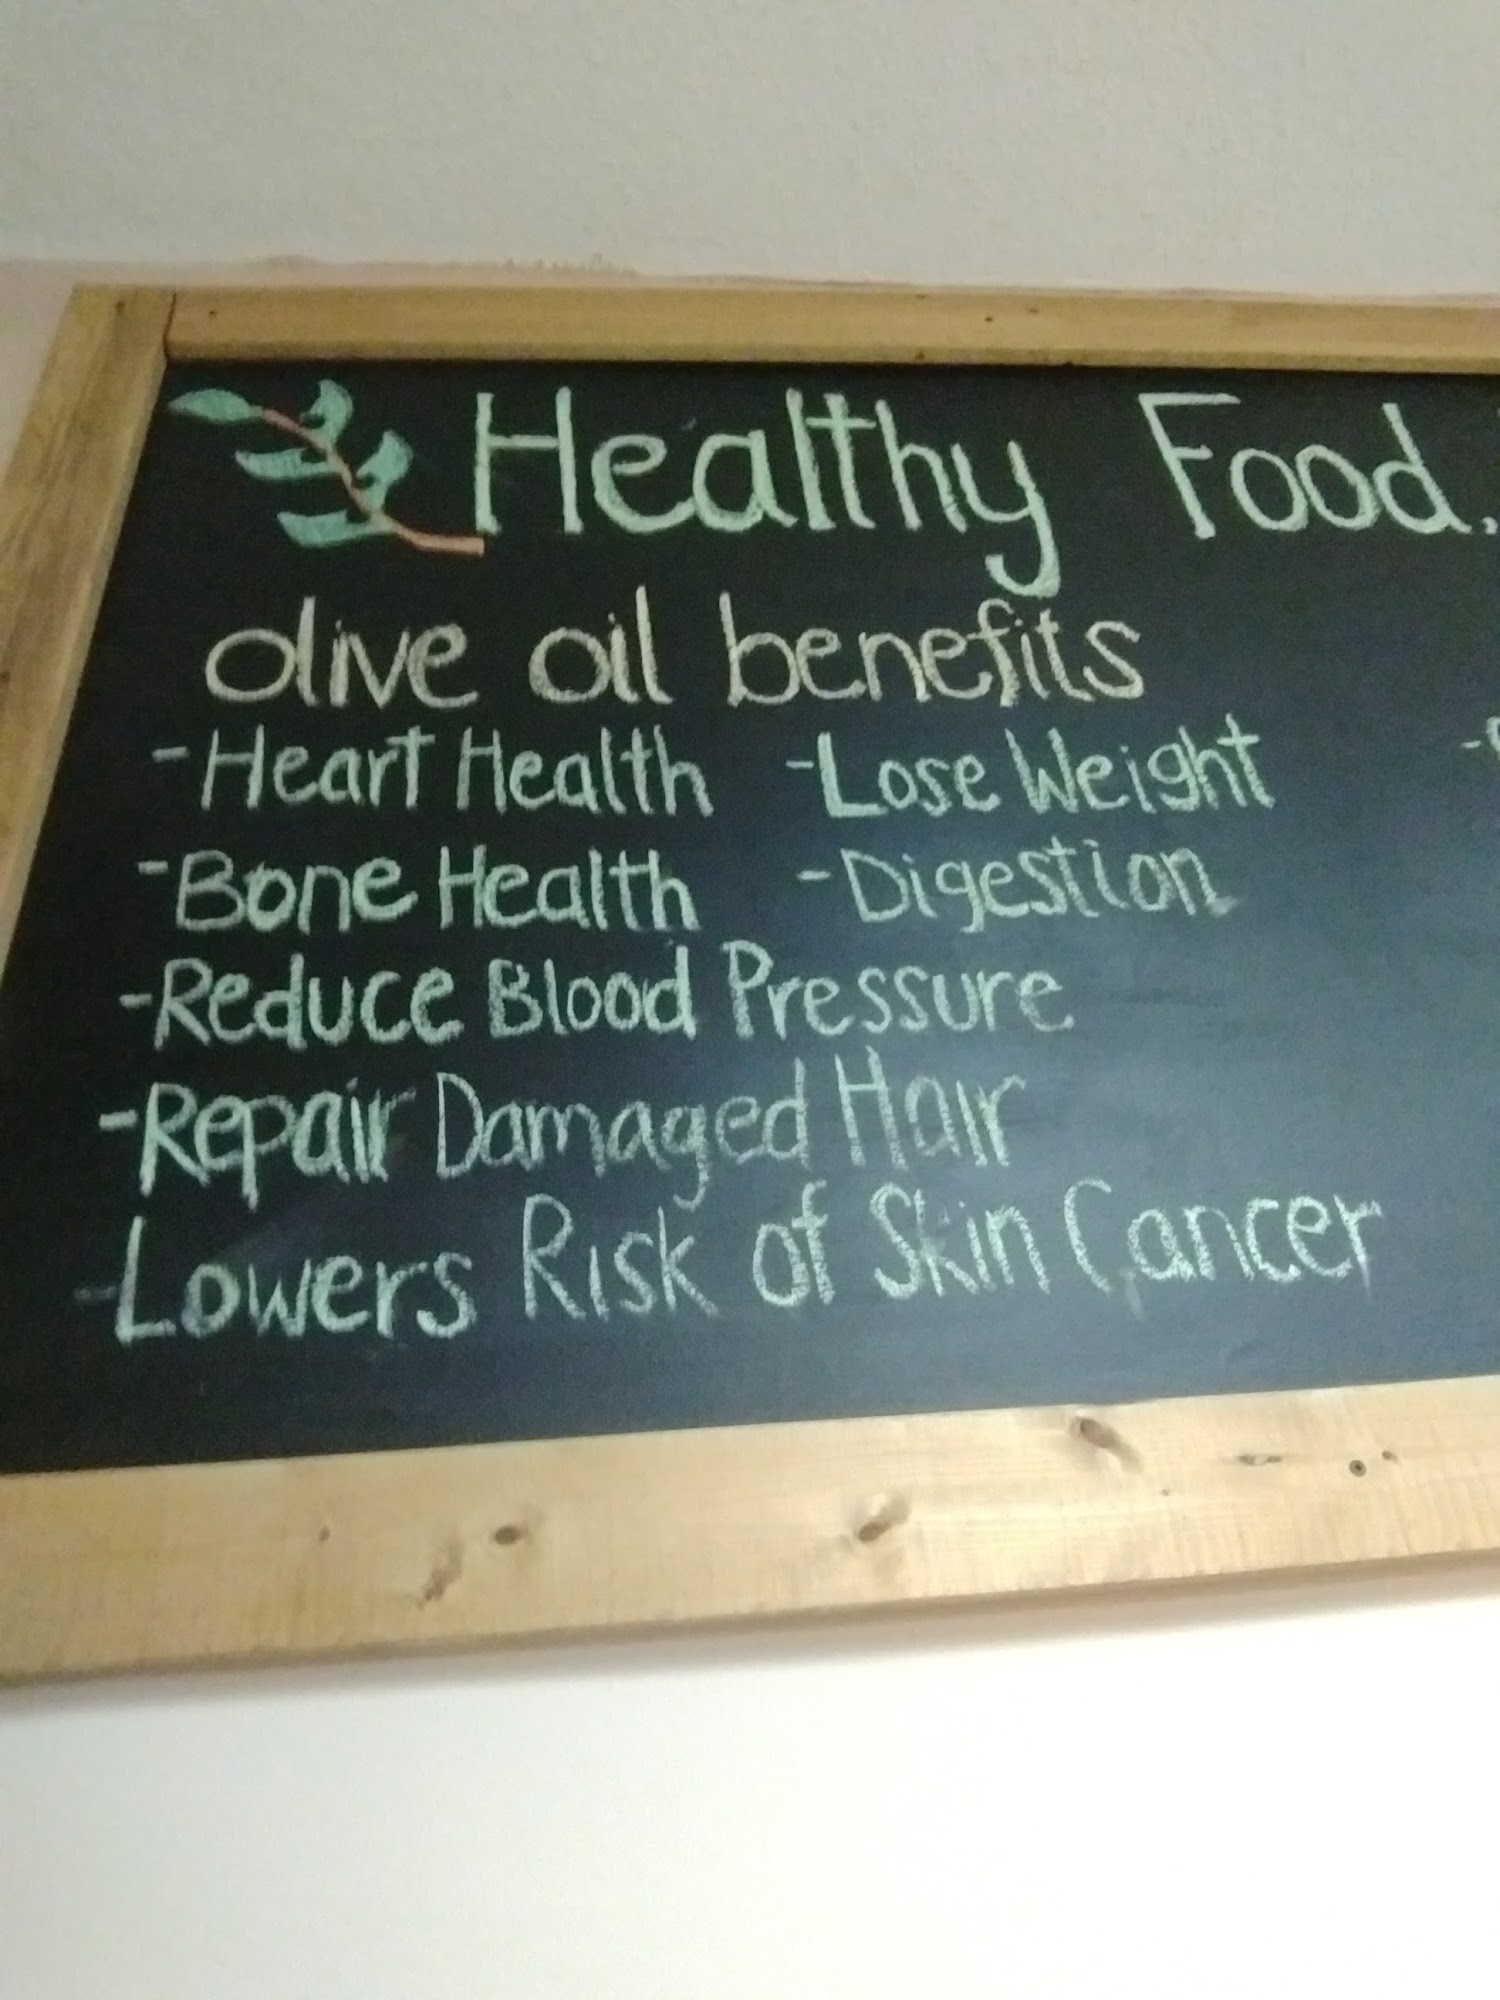 Healthy Food.
olive oil benefits
-Heart Health -Lose Weight
-Bone Health -Digestion
-Reduce Blood Pressure
-Repair Damaged Hair
-Lowers Risk of Skin Cancer